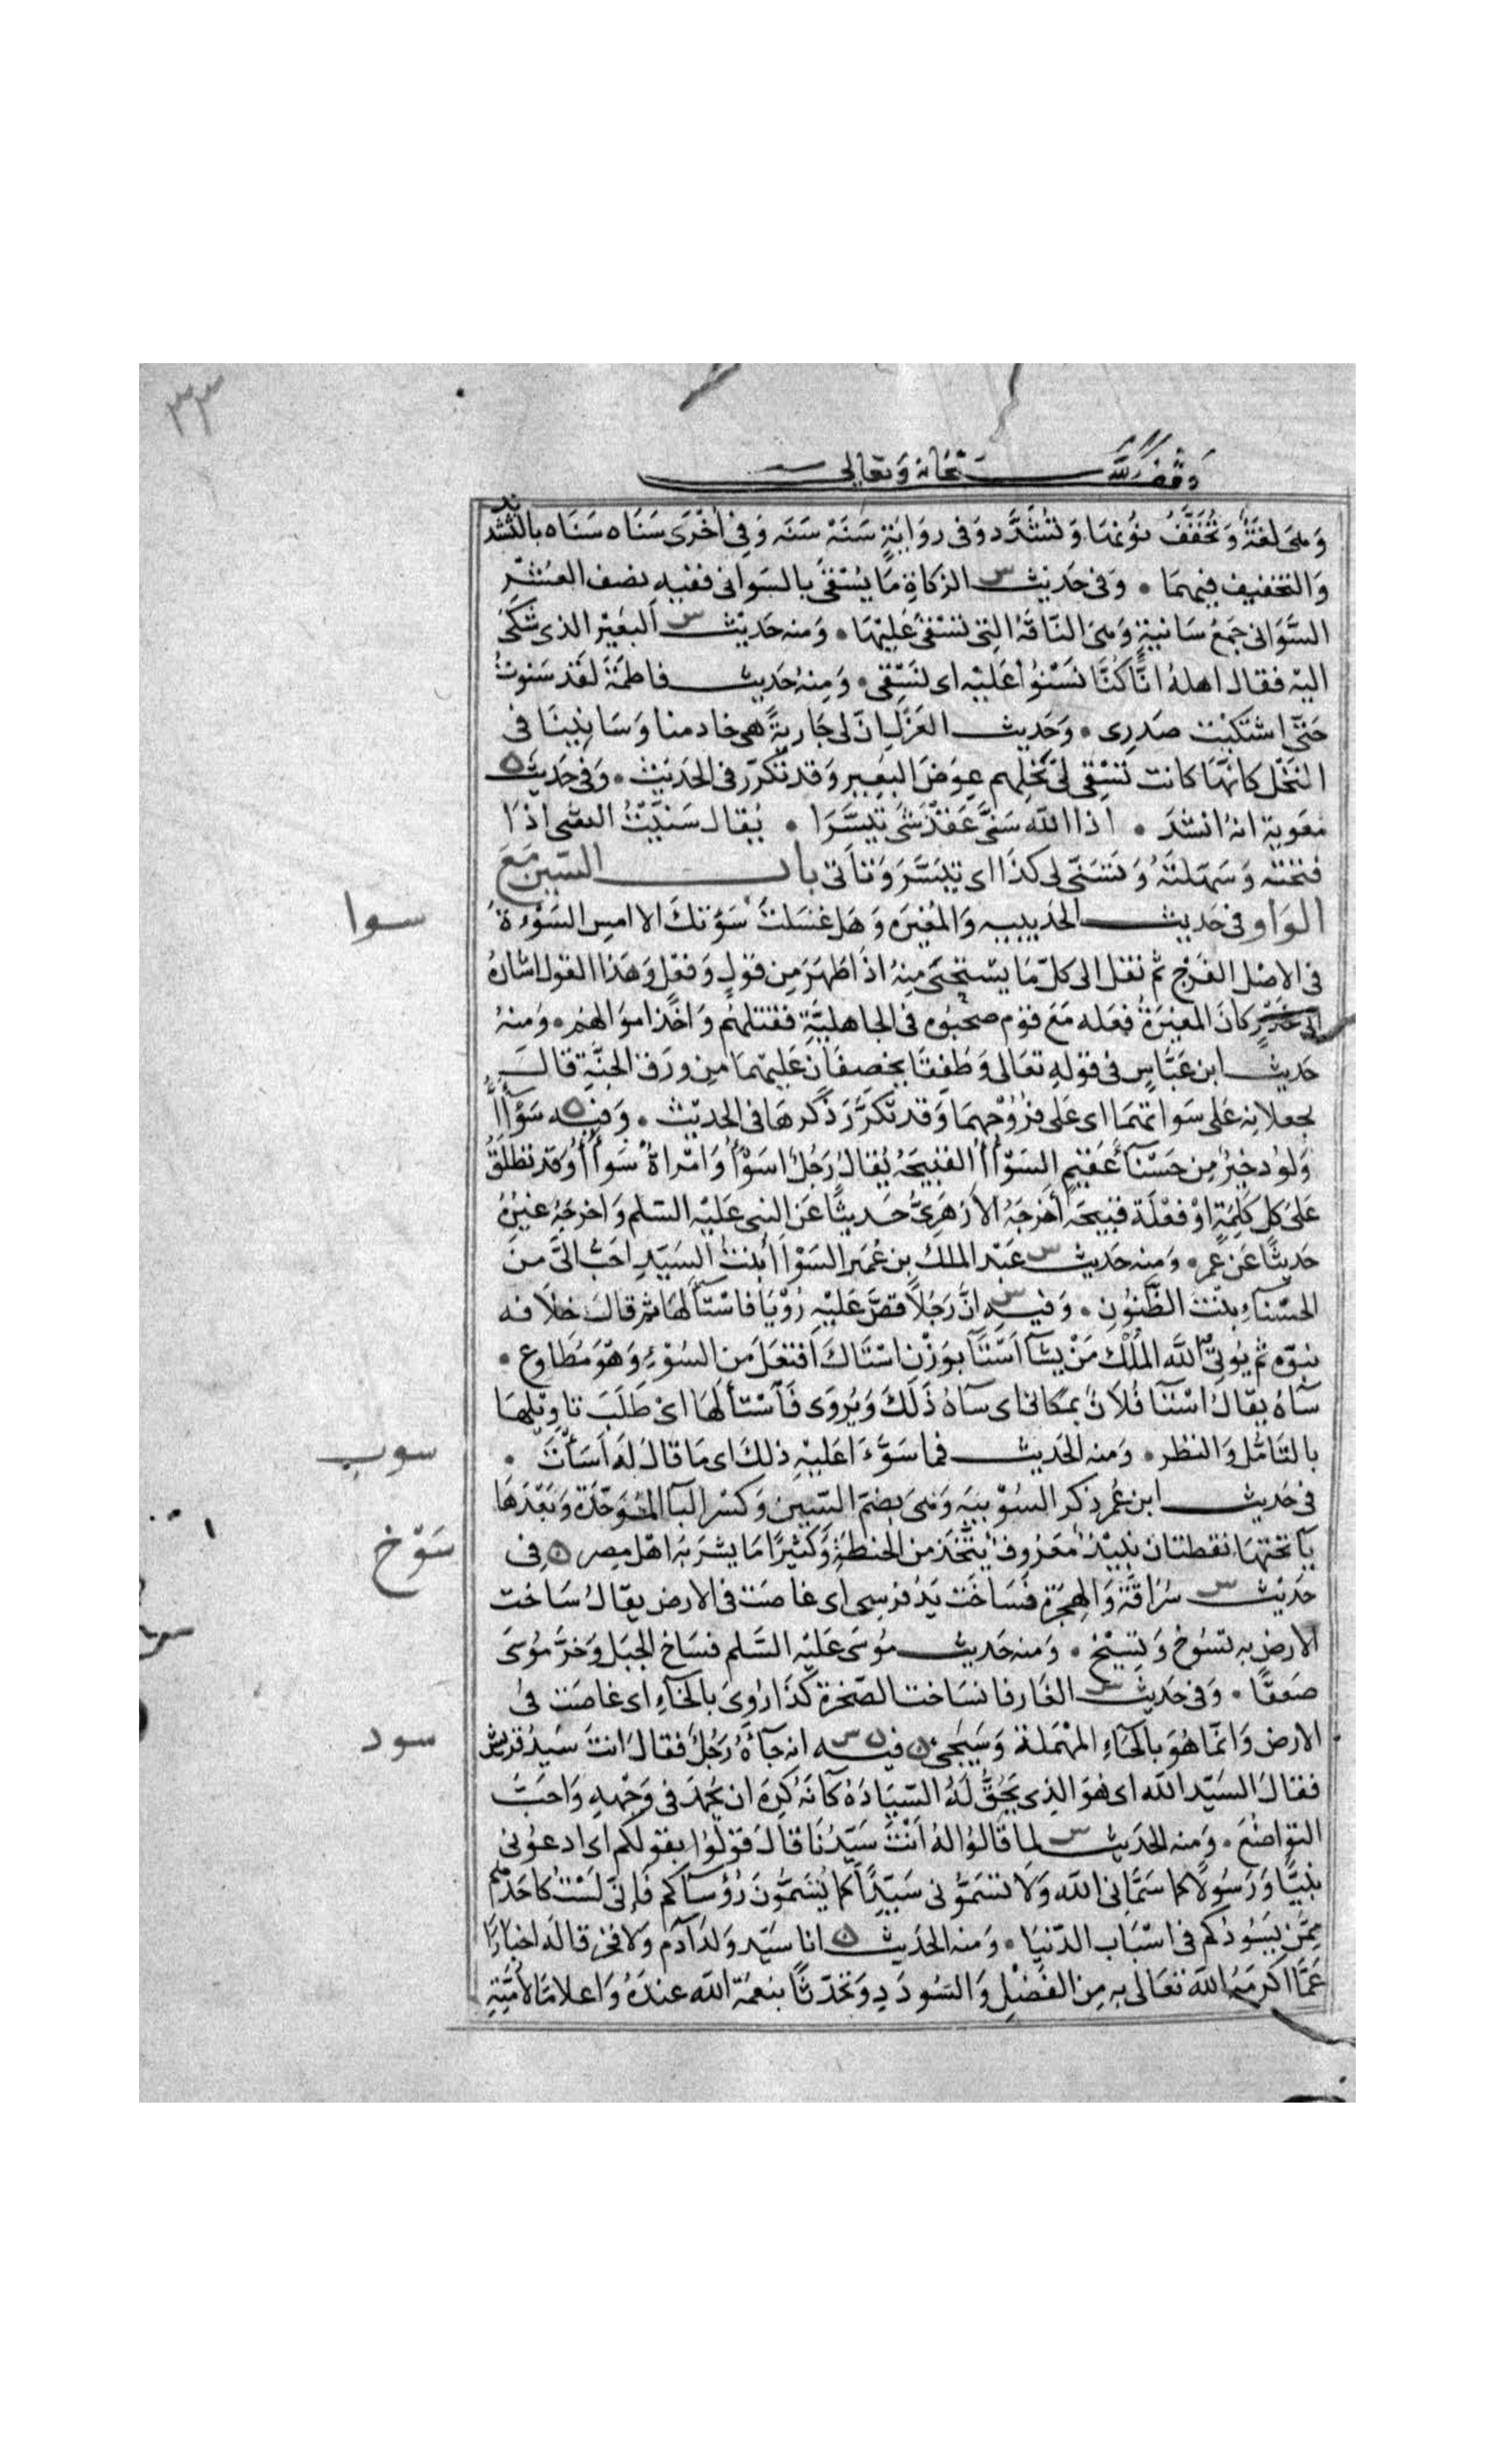 ٣٣
وقف لله سبحانه وتعالى
وَهىَ لغَةٌ وَتُخَفَّفُ نوُنهَا وَتُشَدَّد وَفى روَايَةٍ سَنَهْ سَنَه وَفِى اُخْرَى سَنَاه سَنَاه بالتشديد
وَالتخفيف فيهمَا • وَفى حَديث س الزكاةِ مَا يُسْقَى بالسَوانى ففيه نصف العُشْر
السَّوَانى جَمعُ سَانيةٍ وَهىَ النَاقَةُ التِى يُسْتقىَ عَليْهَا • وَمنه حَديْث س البَعيْر الذى شَكَى
اليْه فقال اهلهُ انَّا كُنَّا نَسْنُوُا عَليْه اى نَسْتَقِى • وَمِنهُ حَديث فاطمَةَ لقَد سَنوتُ
حَتىَّ اشتكيْت صَدرِى • وَحَديث العَزلِ انَّ لى جَاريةً هى خادمنا وَسَانيتنَا فى
النَخْل كانهَّا كانت تَسْتِقى لىَ نخلهم عِوَضَ البعِير وَقد تكرّر فى الحَديث • وَفى حَديث ه
مَعويةَ انهُ انشدَ • اذا الله سَنىَّ عَقْدَ شَىءٍ تَيسَّرَا • يُقال سَنيْتُ الشى اذا
فتحته وَسَهّلتَهُ وَتَسَنّى لى كذَا اى تيَسَّرَ وَتأتى باب السّين مَعَ
سوا
الوَاو فى حَديث الحديبيه وَالمُغيرَه وَهَل غَسَلتَ سَوْءَتكَ الا امسِ السَوْءة
فى الاصْل الفَرْج ثم نقل الى كلّ مَا يسْتحىَ مِنهُ اذَا ظهَرَ مِن قَولٍ وَفعْل وَهَذا القول اشارةٌ
الى غَدْرٍ كانَ المغيرَةُ فعَله مَعَ قوْم صحبُوه فى الجاهليَّةِ فقتلهُم وَاخَذ اموَالهُم • وَمنهُ
حَديث ابن عَبَّاسٍ فى قوْلهِ تعَالى وَطفِقا يخصفَان عَليهمَا مِن وَرَق الجنَّةِ قالَ
يجعلانه عَلى سَواتهمَا اى عَلى فرُوْجهِمَا وَقد تكَرَّرَ ذكرهَا فى الحديْث • وَفيه ه سَوْآءُ
وَلوُد خيرٌ مِن حَسْنآءَ عَقيْمٍ السَوْآءُ القبيحَه يُقالُ رَجُلٌ اسَوْءُ وَامْراةٌ سَوآءُ وَقد تطلقُ
عَلى كل كلِمَةٍ اوْ فعْلَة قبيحَه أخرَجَهُ الأزهَرِىُّ حَديثًا عَن النبى عَليْه السّلم وَاخرجَهُ غيْرُه
حَديثًا عَن عُمر • وَمنه حَديث س عَبْد الملك بن عُمَير السَوْآءُ بنتُ السَيّدِ احَبُّ الىَّ منَ
الحسْنآءِ بنْت الظَّنُونِ • وَفيه س انَّ رَجُلاً قصَّ عَليْهِ رُؤْيَا فاسْتآءَ لهَا ثم قالَ خلافه
نبوّه ثم يُوتىِ الله المُلْك مَنْ يشآ اسْتآءَ بوَزْنِ اسْتَاكَ افتعَلَ منَ السُوْءِ وَهْوَ مُطَاوع •
سَآءَه يقالُ اسْتآءَ فُلانٌ بمكانى اى سآءَهُ ذَلكَ وَيُروَى فَاسْتألهَا اىْ طَلَبَ تاوِيْلهَا
سوب
بالتَامّل وَالنظر • وَمنه الحَديث فما سَوَّءَ اعَليْهِ ذلكَ اى مَا قالَ لَه اَسَأتَ •
فى حَديث ابن عُمر ذكر السُوْبيَه وَهىَ بضمّ السّيْن وَكسْر البآ الموَحّدَة وَبَعْدَهَا
سَوّخ
يآ تحتهَا نقطتان نبيْذٌ مَعْرُوفٌ يتَّخذ من الحنطَةِ وَكثيْرًا مَا يشرَبهُ اهْل مِصر ه فى
حَديْث س سُرَاقَةَ وَالهِجرَةِ فسَاخَت يَدُ فرسِى اى غاصَت فى الارض يقالُ سَاخت
الارض به تسُوخ وَتسِيْخ • وَمنه حَديث مُوسَى عَليْه السَّلم فسَاخ الجبَل وَخرَّ مُوسَى
صَعقًا • وَفى حَديث س الغَار فانسَاخت الصّخرة كذَا رُوِىَ بالخآءِ اى غاصَت فى
سود
الارض وَانّمَا هُوَ بالحَاءِ المهْمَلة وَسَيَجىُ ه فيه س انه جآءَهُ رَجُلٌ فقالَ انتَ سَيّدُ قريش
فقالَ السَيّد الله اى هُوَ الذِى يَحُقُّ لهُ السّيَادَهُ كأنه كرِهَ ان يُحمَدَ فى وَجْههِ وَاحَبَّ
التوَاضُعَ • وَمنه الحَديث س لما قالوُا لهُ اَنْتَ سَيّدُنَا قالَ قوْلُوا بقولكم اى ادعُونى
نبيًّا وَرَسُولاً كما سَمَّانى الله وَلا تسَمُّونى سَيّدًا كما تُسَمّونَ رُؤسآكم فإنى لسْتُ كاحَدهم
ممَّن يَسُوْدُكم فى اسْبَاب الدّنيَا • وَمنه الحَديث ه انا سَيّد وَلدَ آدَم وَلا فخر قالَه اخبارًا
عَمَّا اكرمَهُ الله تعَالى به مِن الفَضْلِ وَالسُودَدِ وَتحَدّثًا بنعمَة الله عندَهُ وَاعلامًا لامّتِهِ